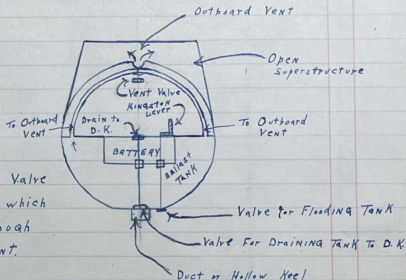 Outboard Vent
Open
Superstructure
Vent Valve
Kingston
Lever
To Outboard
Vent
Drain to
D.K.
To Outboard
Vent
BATTERY
BALLAST
TANK
Valve
which
ough
nt.
Valve for Flooding Tank
Valve For Draining Tank To D.K.
Duct or Hollow Keel